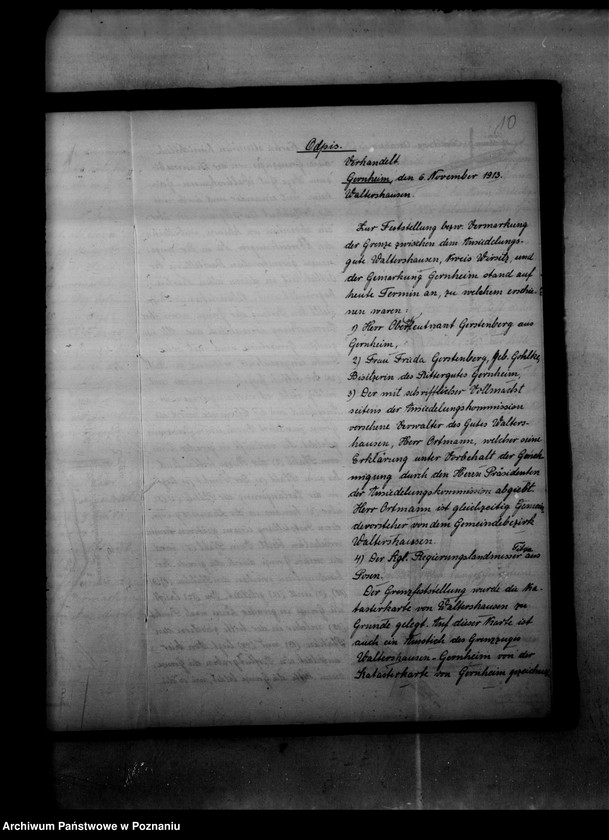 10
Odpis.
Verhandelt
Gernheim, den 6. November 1913.
Waltershausen.
Zur Feststellung bezw. Vermarkung
der Grenze zwischen dem Ansiedelungs-
gute Waltershausen, Kreis Wirsitz, und
der Gemarkung Gernheim stand auf
heute Termin an, zu welchem erschie-
nen waren:
1) Herr Oberleutnant Gerstenberg aus
Gernheim,
2) Frau Frida Gerstenberg, geb. Gohlke,
Besitzerin des Rittergutes Gernheim,
3) Der mit schriftlicher Vollmacht
seitens der Ansiedelungskommission
versehene Verwalter des Gutes Walters-
hausen, Herr Ortmann, welcher seine
Erklärung unter Vorbehalt der Geneh-
migung durch den Herrn Präsidenten
der Ansiedelungskommission abgiebt.
Herr Ortmann ist gleichzeitig Gemein-
devorsteher von dem Gemeindebezirk
Waltershausen.
4) Der Kgl. Regierungslandmesser aus
Posen.
Der Grenzfeststellung wurde die Ka-
tasterkarte von Waltershausen zu
Grunde gelegt. Auf dieser Karte ist
auch ein Ausstich des Grenzzuges
Waltershausen-Gernheim von der
Katasterkarte von Gernheim gezeichnet
Archiwum Państwowe w Poznaniu